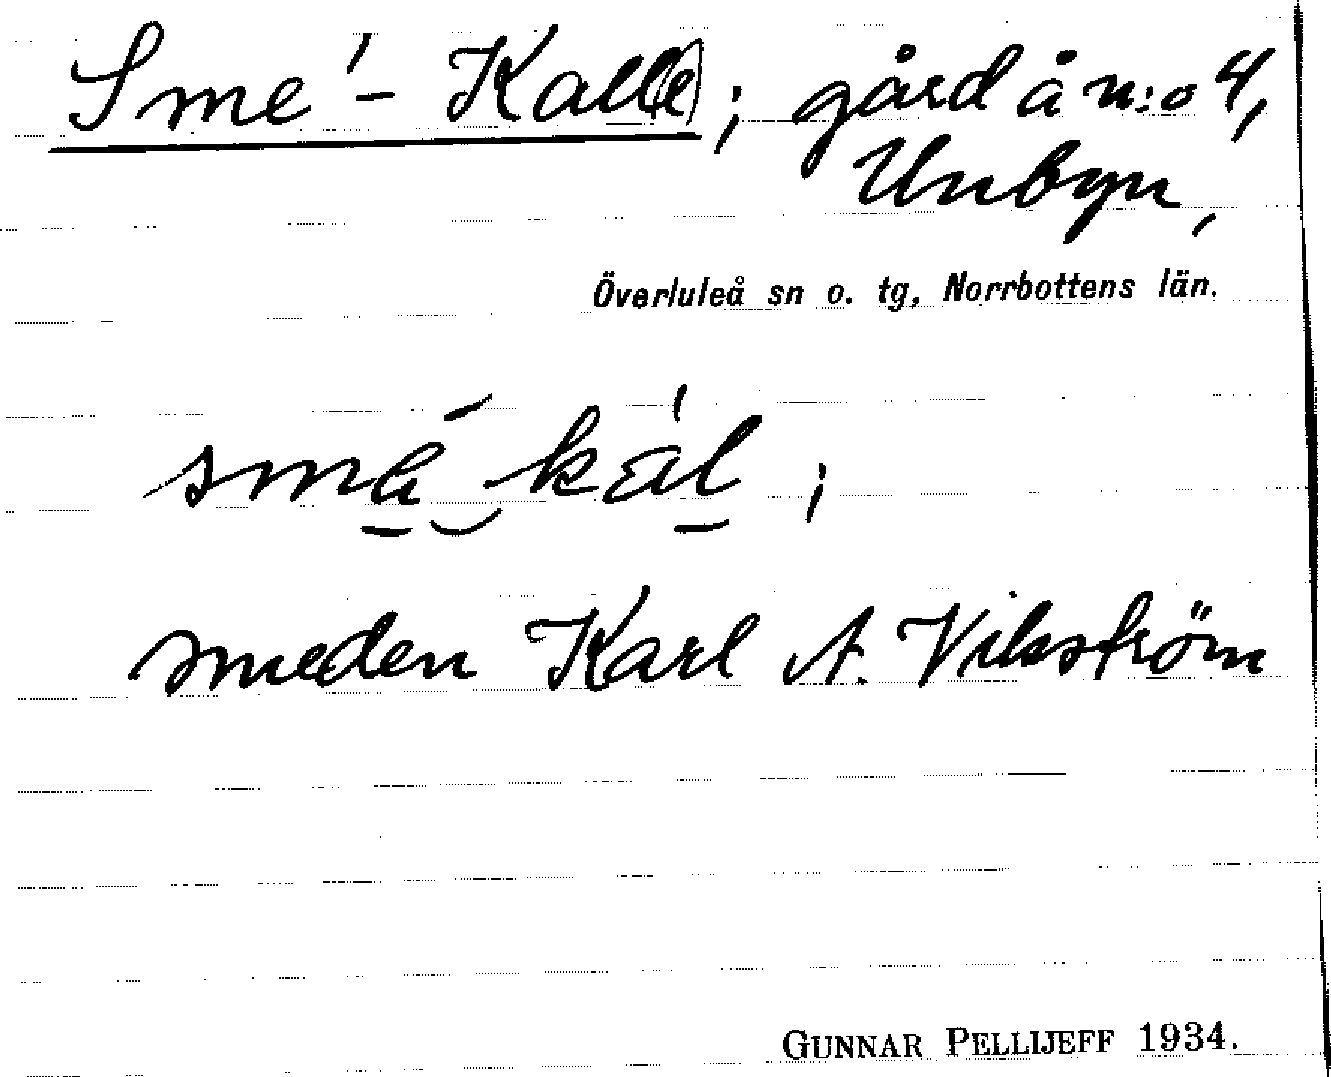 Sme'-Kall(e); gård å n:o 4,
Unbyn,
Överluleå sn o. tg, Norrbottens län.
smȧ̱́‿kȧ̱l;
smeden Karl A. Vikström
GUNNAR PELLIJEFF 1934.